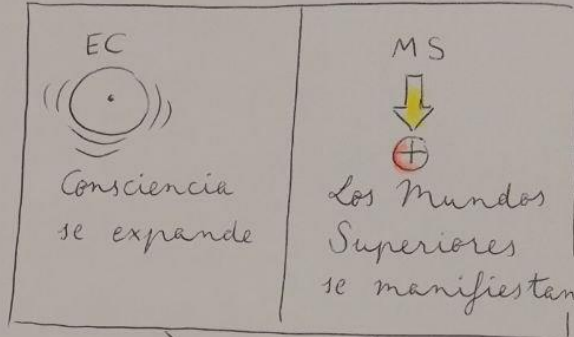 EC
Consciencia
se expande
MS
Los Mundos
Superiores
se manifiestan